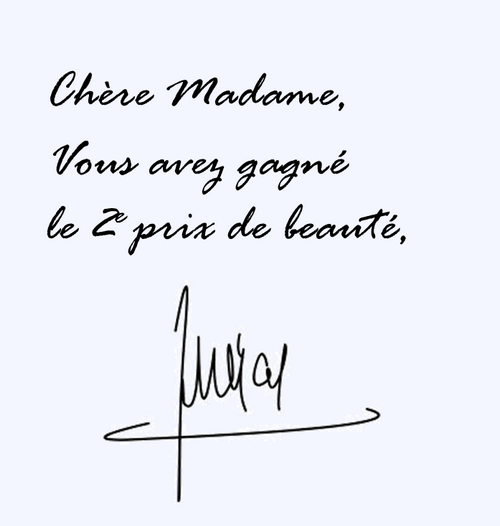 Chère Madame,
Vous avez gagné
le 2e prix de beauté,